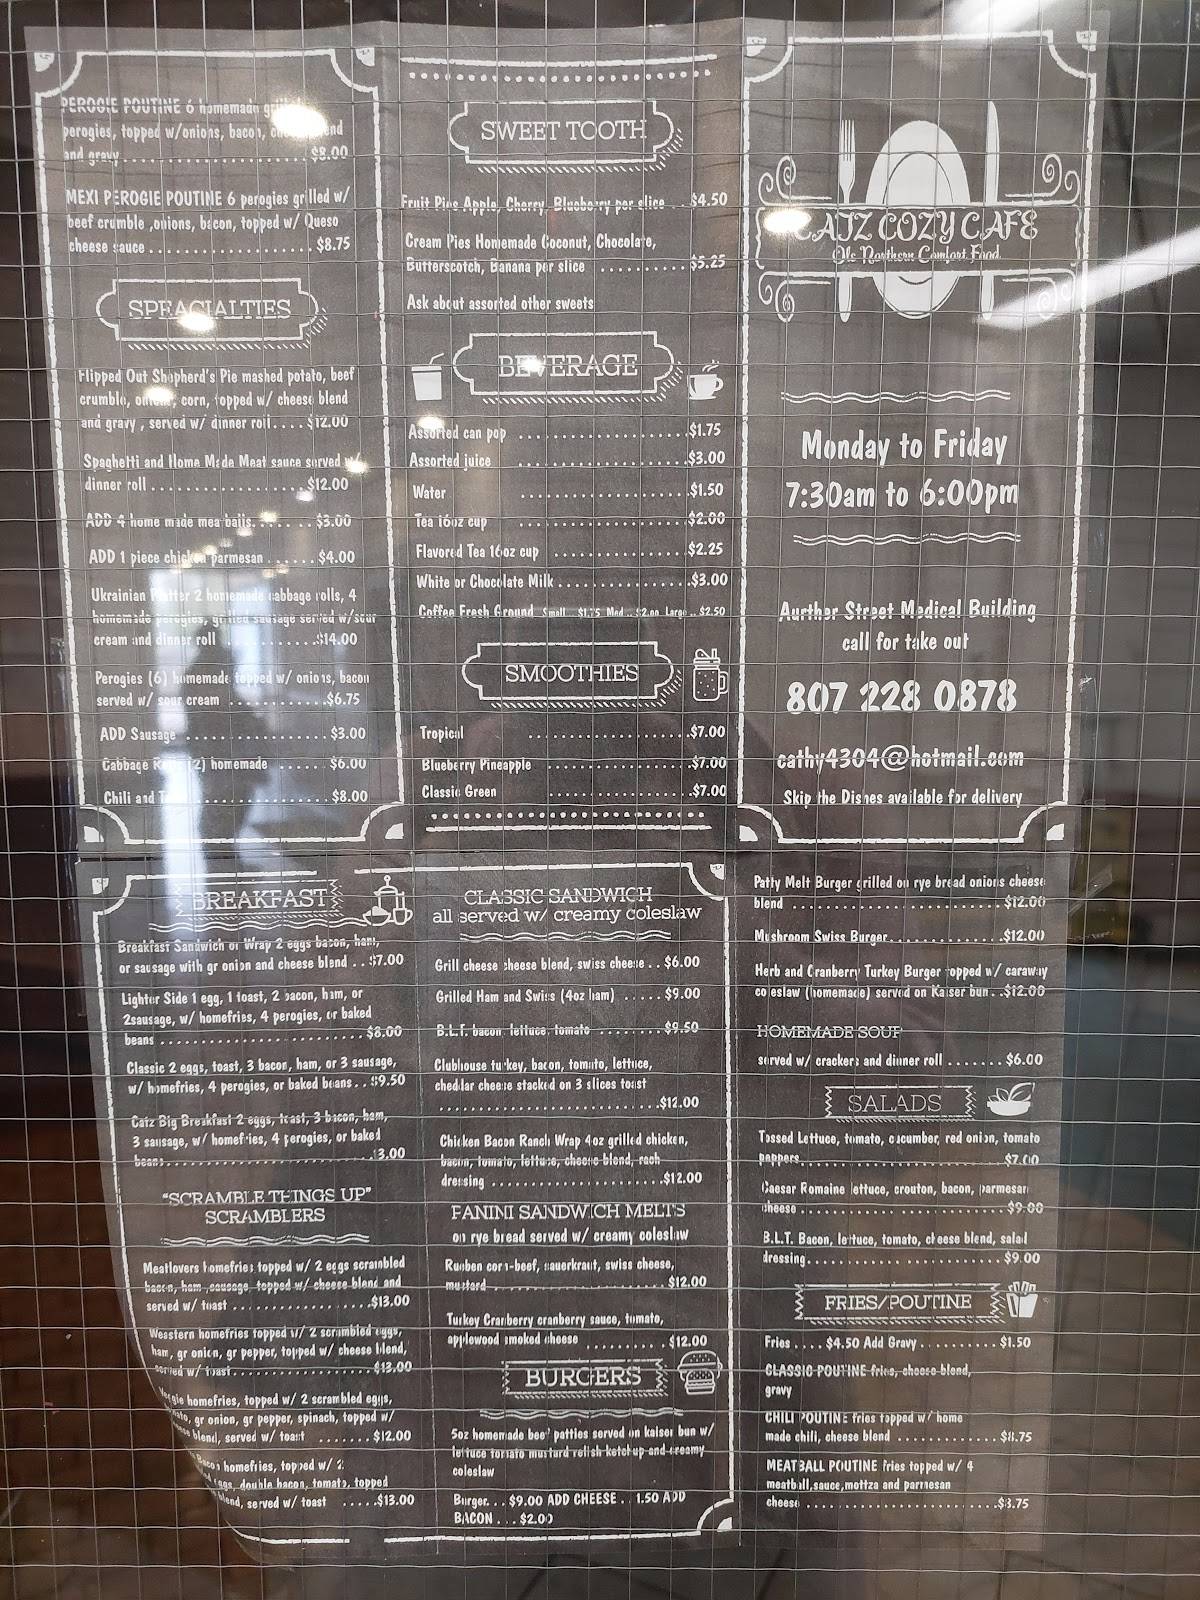 PEROGIE POUTINE 6 homemade
perogies, topped w/onions, bacon,
and gravy . . . $8.00
MEXI PEROGIE POUTINE 6 perogies grilled w/
beef crumble ,onions, bacon, topped w/ Queso
cheese sauce . . . $8.75
SPEACIALTIES
Flipped Out Shepherd's Pie mashed potato, beef
crumble, onions, corn, topped w/ cheese blend
and gravy , served w/ dinner roll. . . . $12.00
Spaghetti and Home Made Meat sauce served w/
dinner roll . . . $12.00
ADD 4 home made mea balls. . . . $3.00
ADD 1 piece chicken parmesan . . . $4.00
Ukrainian Platter 2 homemade cabbage rolls, 4
homemade perogies, grilled sausage served w/sour
cream and dinner roll . . . $14.00
Perogies (6) homemade topped w/ onions, bacon
served w/ sour cream . . . $6.75
ADD Sausage . . . $3.00
Cabbage Rolls (2) homemade . . . $6.00
Chili and . . . $8.00
SWEET TOOTH
Fruit Pies Apple, Cherry, Blueberry per slice . . $4.50
Cream Pies Homemade Coconut, Chocolate,
Butterscotch, Banana per slice . . . $5.25
Ask about assorted other sweets
BEVERAGE
Assorted can pop . . . $1.75
Assorted juice . . . $3.00
Water . . . $1.50
Tea 16oz cup . . . $2.00
Flavored Tea 16oz cup . . . $2.25
White or Chocolate Milk . . . $3.00
Coffee Fresh Ground Small . . $1.75 Med . . $2.00 Large . . $2.50
SMOOTHIES
Tropical . . . $7.00
Blueberry Pineapple . . . $7.00
Classic Green . . . $7.00
CATZ COZY CAFE
Ole Northern Comfort Food
Monday to Friday
7:30am to 6:00pm
Aurther Street Medical Building
call for take out
807 228 0878
cathy4304@hotmail.com
Skip the Dishes available for delivery
BREAKFAST
Breakfast Sandwich or Wrap 2 eggs bacon, ham,
or sausage with gr onion and cheese blend . . $7.00
Lighter Side 1 egg, 1 toast, 2 bacon, ham, or
2sausage, w/ homefries, 4 perogies, or baked
beans . . . $8.00
Classic 2 eggs, toast, 3 bacon, ham, or 3 sausage,
w/ homefries, 4 perogies, or baked beans . . $9.50
Catz Big Breakfast 2 eggs, toast, 3 bacon, ham,
3 sausage, w/ homefries, 4 perogies, or baked
beans. . .
"SCRAMBLE THINGS UP"
SCRAMBLERS
Meatlovers homefries topped w/ 2 eggs scrambled
bacon, ham ,sausage topped w/ cheese blend and
served w/ toast . . . $13.00
Weastern homefries topped w/ 2 scrambled eggs,
ham, gr onion, gr pepper, topped w/ cheese blend,
served w/ toast. . . $13.00
homefries, topped w/ 2 scrambled eggs,
gr onion, gr pepper, spinach, topped w/
blend, served w/ toast . . . $12.00
homefries, topped w/ 2
eggs, double bacon, tomato, topped
blend, served w/ toast . . . $13.00
CLASSIC SANDWICH
all served w/ creamy coleslaw
Grill cheese cheese blend, swiss cheese . . $6.00
Grilled Ham and Swiss (4oz ham) . . . $9.00
B.L.T. bacon, lettuce, tomato . . . $9.50
Clubhouse turkey, bacon, tomato, lettuce,
cheddar cheese stacked on 3 slices toast
. . . $12.00
Chicken Bacon Ranch Wrap 4oz grilled chicken,
bacon, tomato, lettuce, cheese blend, rach
dressing . . . $12.00
PANINI SANDWICH MELTS
on rye bread served w/ creamy coleslaw
Rueben corn-beef, sauerkraut, swiss cheese,
mustard . . . $12.00
Turkey Cranberry cranberry sauce, tomato,
applewood smoked cheese . . . $12.00
BURGERS
5oz homemade beef patties served on kaiser bun w/
lettuce tomato mustard relish ketchup and creamy
coleslaw
Burger. . . $9.00 ADD CHEESE . . 1.50 ADD
BACON . . . $2.00
Patty Melt Burger grilled on rye bread onions cheese
blend . . . $12.00
Mushroom Swiss Burger. . . $12.00
Herb and Cranberry Turkey Burger topped w/ caraway
coleslaw (homemade) served on Kaiser bun . . $12.00
HOMEMADE SOUP
served w/ crackers and dinner roll . . . $6.00
SALADS
Tossed Lettuce, tomato, cucumber, red onion, tomato
peppers. . . $7.00
Caesar Romaine lettuce, crouton, bacon, parmesan
cheese . . . $9.00
B.L.T. Bacon, lettuce, tomato, cheese blend, salad
dressing. . . $9.00
FRIES/POUTINE
Fries . . . . $4.50 Add Gravy . . . $1.50
CLASSIC POUTINE fries, cheese blend,
gravy
CHILI POUTINE fries topped w/ home
made chili, cheese blend . . . $8.75
MEATBALL POUTINE fries topped w/ 4
meatball,sauce,mottza and parmesan
cheese . . . $8.75